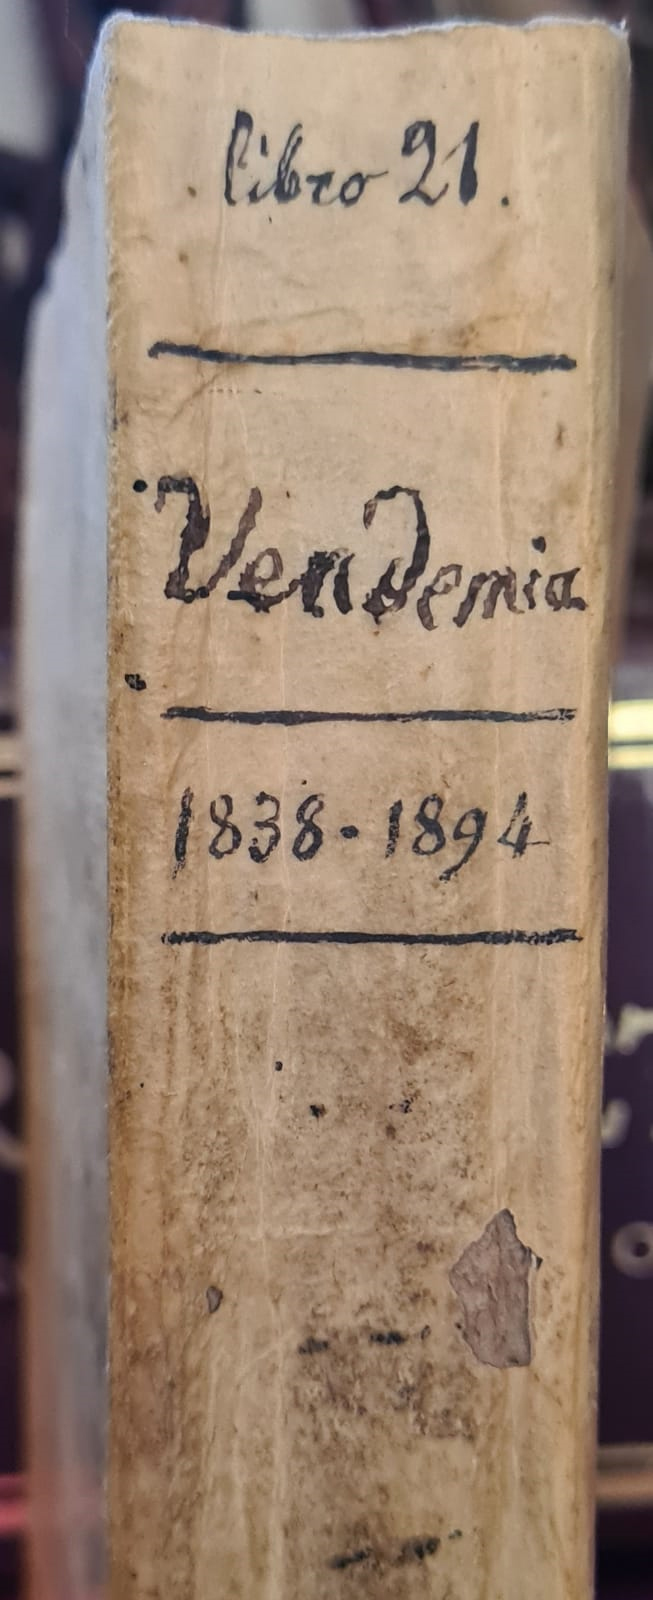 libro 21.
Vendemia
1838-1894